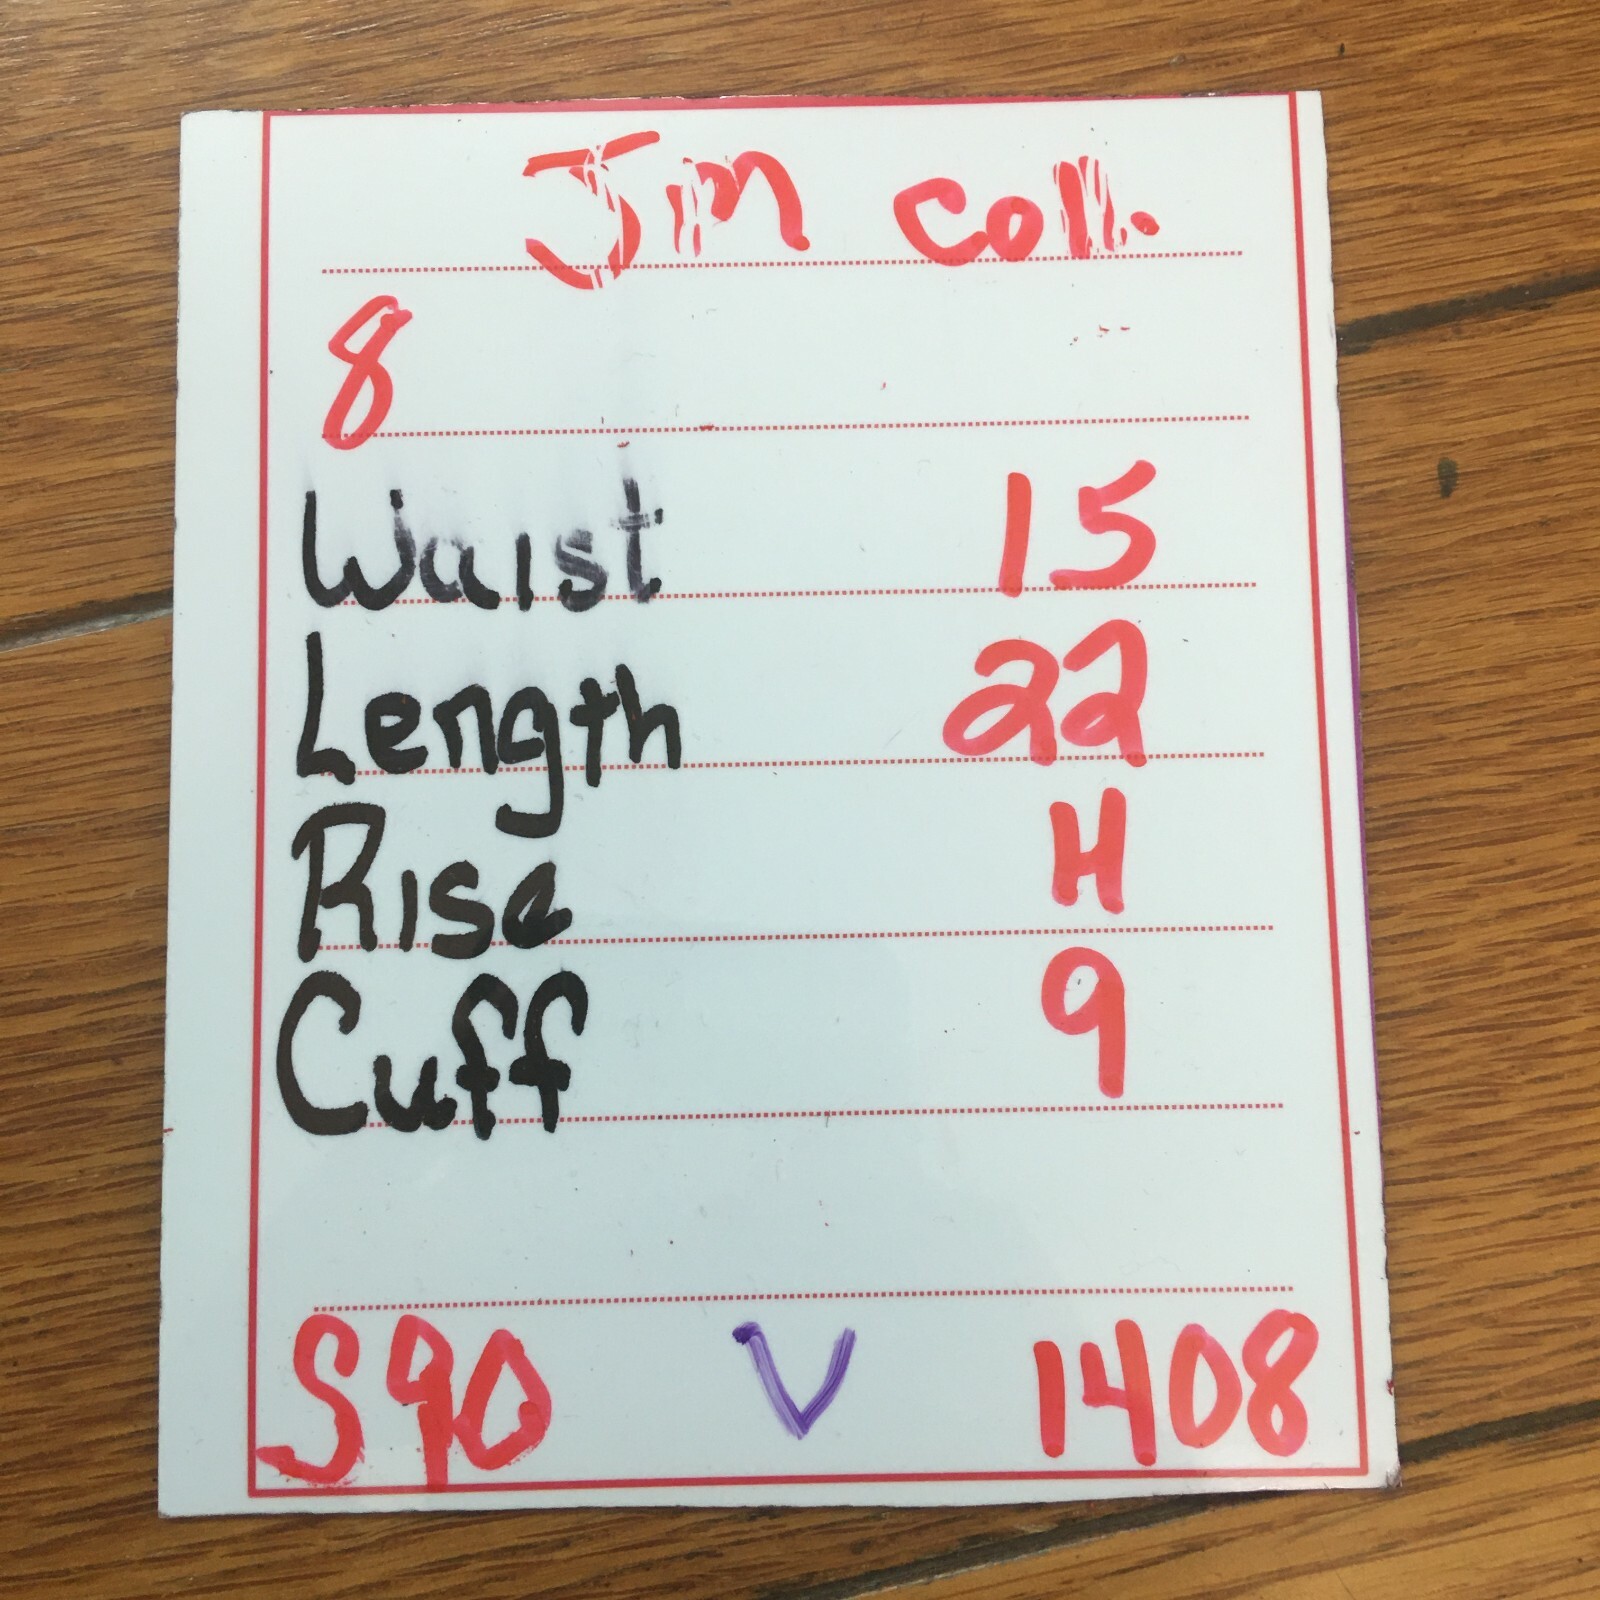 Jm coll.
8
Waist 15
Length 22
Rise 11
Cuff 9
S90 V 1408